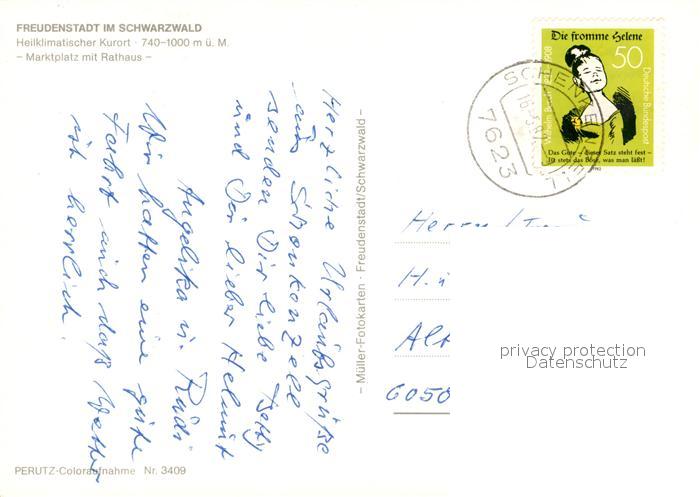 FREUDENSTADT IM SCHWARZWALD
Heilklimatischer Kurort · 740–1000 m ü. M.
– Marktplatz mit Rathaus –
Herzliche Urlaubsgrüße
aus Schenkenzell
senden Dir liebe Betty
und Dir lieber Helmut
Angelika u. Rudi
Wir hatten eine gute
Fahrt und das Wetter
ist herrlich.
PERUTZ-Coloraufnahme Nr. 3409
– Müller-Fotokarten · Freudenstadt/Schwarzwald –
Die fromme Helene
50
Deutsche Bundespost
Wilhelm Busch 1908
Das Gute – dieser Satz steht fest –
Ist stets das Böse, was man läßt!
1982
SCHENKENZELL
7623
Herrn
H.
Alt
6050
privacy protection
Datenschutz